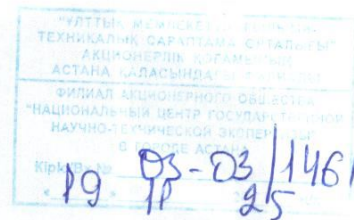 "ҰЛТТЫҚ МЕМЛЕКЕТТІК ҒЫЛЫМИ-
ТЕХНИКАЛЫҚ САРАПТАМА ОРТАЛЫҒЫ"
АКЦИОНЕРЛІК ҚОҒАМЫНЫҢ
АСТАНА ҚАЛАСЫНДАҒЫ ФИЛИАЛЫ
ФИЛИАЛ АКЦИОНЕРНОГО ОБЩЕСТВА
"НАЦИОНАЛЬНЫЙ ЦЕНТР ГОСУДАРСТВЕННОЙ
НАУЧНО-ТЕХНИЧЕСКОЙ ЭКСПЕРТИЗЫ"
В ГОРОДЕ АСТАНА
Кіріс/Вх № 03-03/1461
19 11 25